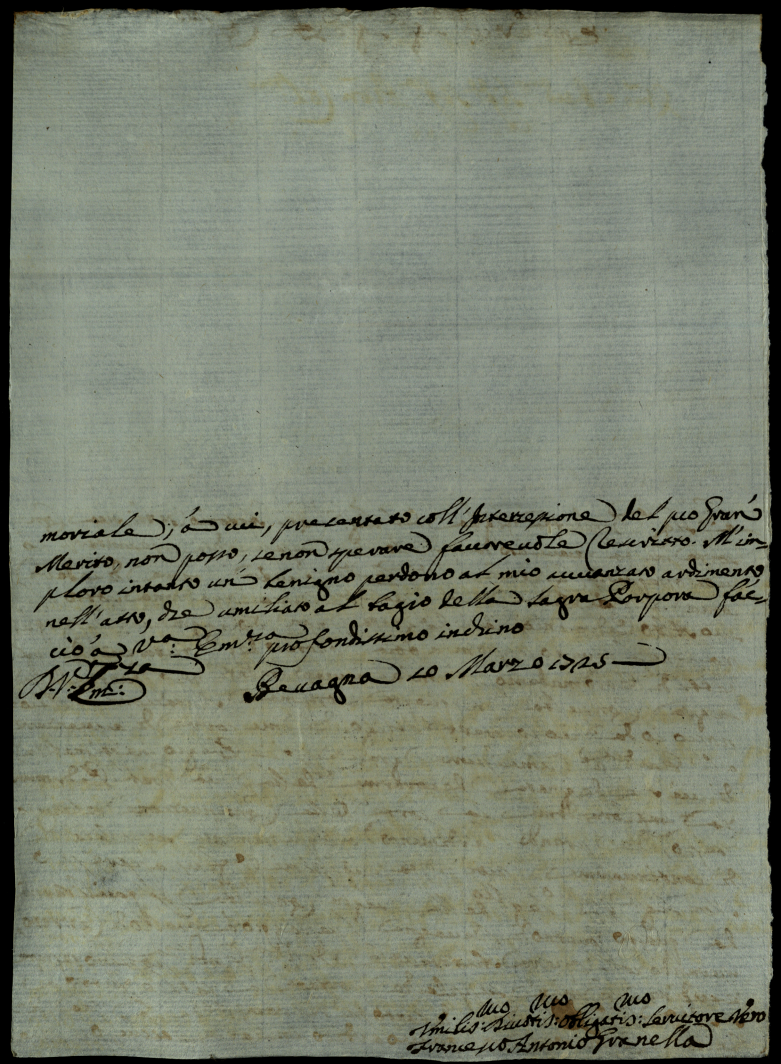 moriale; à cui, presentato coll'Intercessione del suo Gran
Merito, non posso, se non sperare favorevole Rescritto. M'im=
ploro intanto un benigno perdono al mio avvanzato ardimento
nell'atto, che umiliato al bagio della Sagra Porpora fac=
cio à V.ª Em.za profondissimo inchino
D. V.ª Em.za: Bevagna 10 Marzo 1725
Umilis:mo Divotis:mo Obligatis:mo Servitore Vero
Francesco Antonio Granella